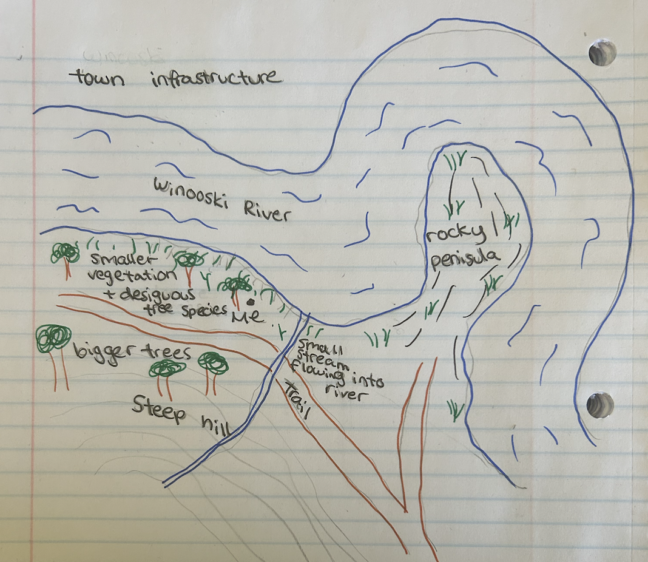 town infrastructure
Winooski River
rocky
penisula
smaller
vegetation
+ desiguous
tree species
Me
bigger trees
small
stream
flowing into
river
Trail
Steep hill